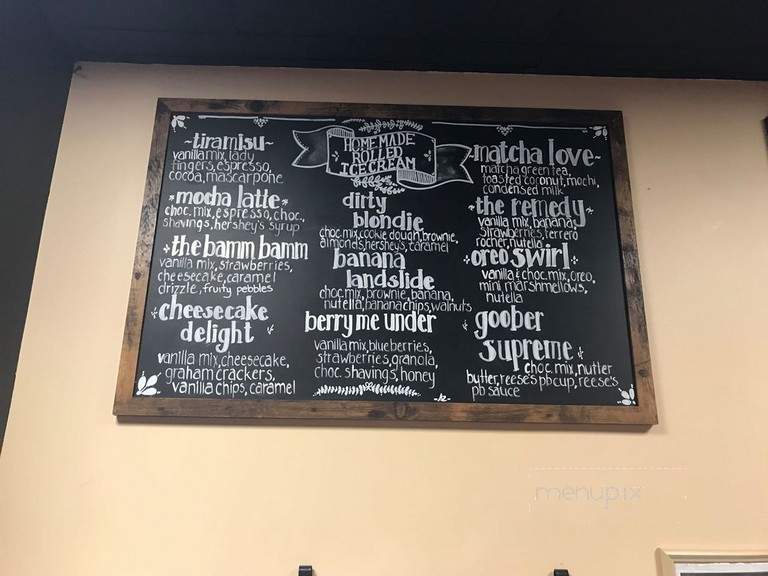 HOMEMADE
ROLLED
ICE CREAM
~tiramisu~
vanilla mix, lady
fingers, espresso,
cocoa, mascarpone
mocha latte
choc. mix, espresso, choc.,
shavings, hershey's syrup
the bamm bamm
vanilla mix, strawberries,
cheesecake, caramel
drizzle, fruity pebbles
cheesecake
delight
vanilla mix, cheesecake,
graham crackers,
vanilla chips, caramel
dirty
blondie
choc. mix, cookie dough, brownie,
almonds, hershey's, caramel
banana
landslide
choc. mix, brownie, banana,
nutella, banana chips, walnuts
berry me under
vanilla mix, blueberries,
strawberries, granola,
choc. shavings, honey
~matcha love~
matcha green tea,
toasted coconut, mochi,
condensed milk
the remedy
vanilla mix, banana,
strawberries, ferrero
rocher, nutella
oreo swirl
vanilla & choc. mix, oreo,
mini marshmellows,
nutella
goober
supreme
choc. mix, nutter
butter, reese's pb cup, reese's
pb sauce
menupix